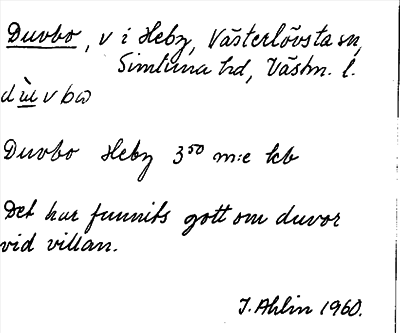 Duvbo, v i Heby, Västerlövsta sn,
Simtuna hd, Västm. l.
dùvbω
Duvbo Heby 3⁵⁰ m:e kb
Det har funnits gott om duvor
vid villan.
J. Ahlin 1960.